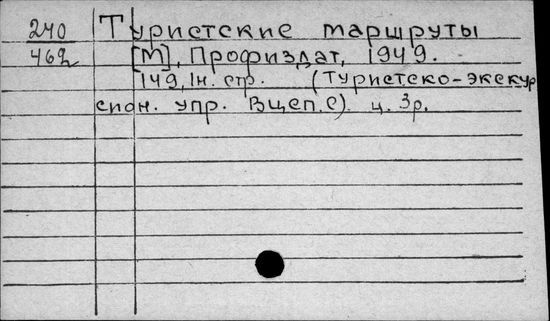 240
462
Туристские маршруты
[М], Профиздат, 1949.
149, 1н. стр. (Туристско-экскур
сион. упр. ВЦСП.С). ц. 3р.